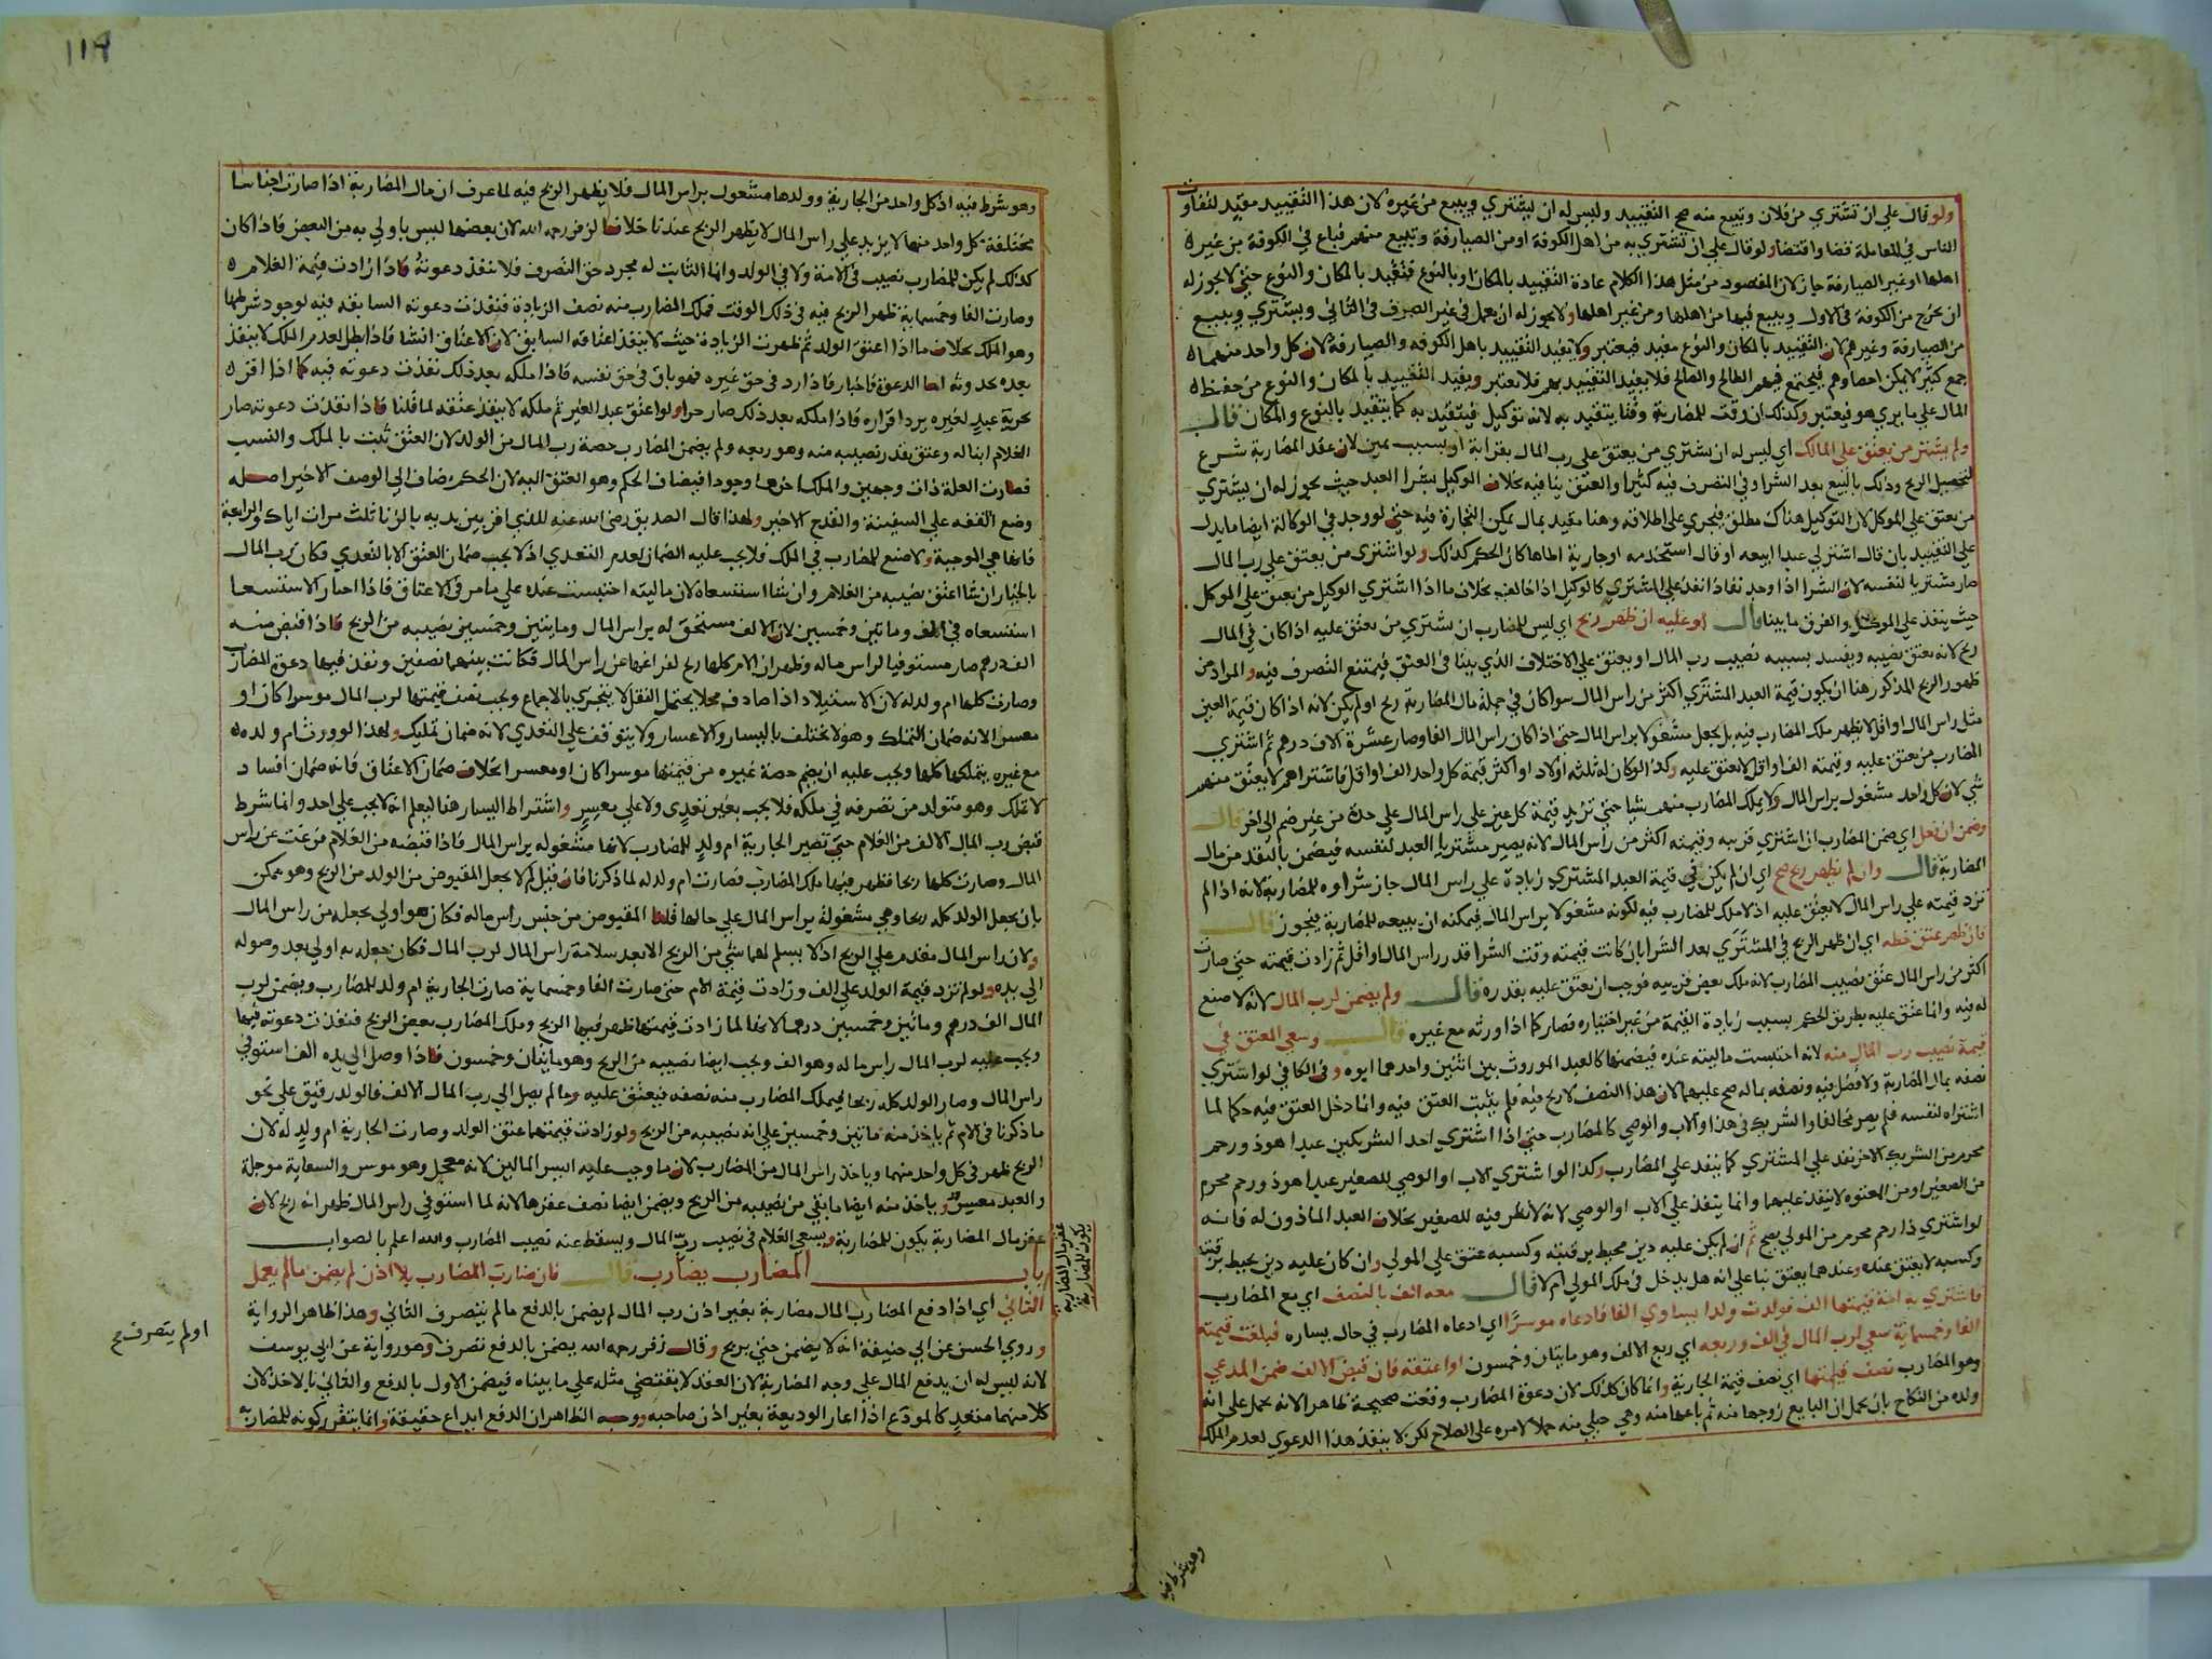 ولو قال على ان تشتري من فلان وتبيع منه صح التقييد وليس له ان يشتري ويبيع من غيره لان هذا التقييد مفيد لتفاوت
الناس في المعاملة قضا واقتضا ولو قال على ان تشتري به من اهل الكوفة او من الصيارفة وتبيع منهم فباع في الكوفة من غير
اهلها او غير الصيارفة جاز لان المقصود من مثل هذا الكلام عادة التقييد بالمكان او بالنوع فتقيد بالمكان والنوع حتى لا يجوز له
ان يخرج من الكوفة في الاول ويبيع فيها من اهلها ومن غير اهلها ولا يجوز له ان يعمل في غير الصرف في الثاني ويشتري ويبيع
من الصيارفة وغيرهم لان التقييد بالمكان والنوع مفيد فيعتبر ولا يفيد التقييد باهل الكوفة والصيارفة لان كل واحد منهما
جمع كثير لا يمكن احصاوهم فيجتمع فيهم الطالح والصالح فلا يفيد التقييد بهم فلا يعتبر ويفيد التقييد بالمكان والنوع من حفظ
المال على ما يري هو فيعتبر وكذلك ان وقت للمضاربة وقتا يتقيد به لانه توكيل فيتقيد به كما يتقيد بالنوع والمكان قال
ولم يشتر من يعتق على المالك اي ليس له ان يشتري من يعتق على رب المال بقرابة او بسبب يمين لان عقد المضاربة شرع
لتحصيل الربح وذلك بالبيع بعد الشرا وفي التصرف فيه كثيرا والعتق ينافيه بخلاف الوكيل بشرا العبد حيث يجوز له ان يشتري
من يعتق على الموكل لان التوكيل هناك مطلق فيجري على اطلاقه وهنا مقيد بمال يمكن التجارة فيه حتى لو وجد في الوكالة ايضا ما يدل
على التقييد بان قال اشتر لي عبدا ابيعه او قال استخدمه او جارية اطاها كان الحكم كذلك ولو اشترى من يعتق على رب المال
صار مشتريا لنفسه لان الشرا اذا وجد نفاذا نفذ على المشتري كالوكيل اذا خالف بخلاف ما اذا اشتري الوكيل من يعتق على الموكل
حيث ينفذ على الموكل والفرق ما بينا قال او عليه ان ظهر ربح اي ليس للمضارب ان يشتري من يعتق عليه اذا كان في المال
ربح لانه يعتق نصيبه ويفسد بسببه نصيب رب المال او يعتق على الاختلاف الذي بينا في العتق فيمتنع التصرف فيه والمراد من
ظهور الربح المذكور هنا ان يكون قيمة العبد المشتري اكثر من راس المال سوا كان في جملة مال المضاربة ربح او لم يكن لانه اذا كان قيمة العين
مثل راس المال او اقل لا يظهر ملك المضارب فيه بل يجعل مشغولا براس المال حتى اذا كان راس المال الفا وصار عشرة الاف درهم ثم اشتري
المضارب من يعتق عليه وقيمته الف او اقل لا يعتق عليه وكذا لو كان له ثلثه اولاد او اكثر قيمة كل واحد الف او اقل فاشتراهم لا يعتق منهم
شي لان كل واحد مشغول براس المال ولا يملك المضارب منهم شيا حتى تزيد قيمة كل عين على راس المال على حدة من غير ضم الى اخر قال
وضمن ان فعل اي ضمن المضارب ان اشتري قريبه وقيمته اكثر من راس المال لانه يصير مشتريا العبد لنفسه فيضمن بالنقد من مال
المضاربة قال وان لم يظهر ربح صح اي ان لم يكن في قيمة العبد المشتري زيادة على راس المال جاز شراوه للمضاربة لانه اذا لم
تزد قيمته على راس المال لا يعتق عليه اذ لا ملك للمضارب فيه لكونه مشغولا براس المال فيمكنه ان يبيعه للمضاربة فيجوز قال
فان ظهر عتق حظه اي ان ظهر الربح في المشترى بعد الشرا بان كانت قيمته وقت الشرا قدر راس المال او اقل ثم زادت قيمته حتى صارت
اكثر من راس المال عتق نصيب المضارب لانه ملك بعض قريبه فوجب ان يعتق عليه بقدره قال ولم يضمن لرب المال لانه لا صنع
له فيه وانما عتق عليه بطريق الحكم بسبب زيادة القيمة من غير اختياره فصار كما اذا ورثه مع غيره قال وسعى المعتق في
قيمة نصيب رب المال منه لانه احتبست ماليته عنده فيضمنها كالعبد الموروث بين اثنين واحدهما ابوه وفي الكافي لو اشتري
نصفه بمال المضاربة ولا فضل فيه ونصفه بماله صح عليهما لان هذا النصف لا ربح فيه فلم يثبت العتق فيه وانما دخل العتق فيه حكما لما
اشتراه لنفسه فلم يصر مخالفا والشريك في هذا والاب والوصي كالمضارب حتى اذا اشتري احد الشريكين عبدا هو ذو رحم
محرم من الشريك الاخر نفذ على المشتري كما ينفذ على المضارب وكذا لو اشتري الاب او الوصي للصغير عبدا هو ذو رحم محرم
من الصغير او من المعتوه لا ينفذ عليهما وانما ينفذ على الاب او الوصي لانه لا نظر فيه للصغير بخلاف العبد الماذون له فانه
لو اشتري ذا رحم محرم من المولى يصح ثم ان لم يكن عليه دين محيط برقبته وكسبه عتق على المولى وان كان عليه دين يحيط برقبته
وكسبه لا يعتق عنده وعندهما يعتق بنا على انه هل يدخل في ملك المولى ام لا قال معه الف بالنصف اي مع المضارب
فاشتري به امة قيمتها الف فولدت ولدا يساوي الفا فادعاه موسرا اي ادعاه المضارب في حال يساره فبلغت قيمته
الفا وخمسماية سعى لرب المال في الف وربعه اي ربع الالف وهو مايتان وخمسون او اعتقه فان قبض الالف ضمن المدعي
وهو المضارب نصف قيمتها اي نصف قيمة الجارية وانما كان كذلك لان دعوة المضارب وقعت صحيحة ظاهرا لانه يحمل على انه
ولده من النكاح بان يحمل ان البايع زوجها منه ثم باعها منه وهي حبلى منه حملا لامره على الصلاح لكن لا ينفذ هذا الدعوي لعدم الملك
وهو شرط فيه
١١٩
وهو شرط فيه اذ كل واحد من الجارية وولدها مشغول براس المال فلا يظهر الربح فيه لما عرف ان مال المضاربة اذا صارت اجناسا
مختلفة كل واحد منها لا يزيد على راس المال لا يظهر الربح عندنا خلافا لزفر رحمه الله لان بعضها ليس باولى به من البعض فاذا كان
كذلك لم يكن للمضارب نصيب في الامة ولا في الولد وانما الثابت له مجرد حق التصرف فلا تنفذ دعوته فاذا زادت قيمة الغلام
وصارت الفا وخمسماية ظهر الربح فيه في ذلك الوقت فملك المضارب منه نصف الزيادة فنفذت دعوته السابقة فيه لوجود شرطها
وهو الملك بخلاف ما اذا اعتق الولد ثم ظهرت الزيادة حيث لا ينفذ اعتاقه السابق لان الاعتاق انشا فاذا بطل لعدم الملك لا ينفذ
بعده بحدوثه اما الدعوة فاخبار فاذا رد في حق غيره فهو باق في حق نفسه فاذا ملكه بعد ذلك نفذت دعوته فيه كما اذا اقر
بحرية عبد لغيره يرد اقراره فاذا ملكه بعد ذلك صار حرا ولو اعتق عبد الغير ثم ملكه لا ينفذ عتقه لما قلنا فاذا نفذت دعوته صار
الغلام ابنا له وعتق بقدر نصيبه منه وهو ربعه ولم يضمن المضارب حصة رب المال من الولد لان العتق ثبت بالملك والنسب
فصارت العلة ذات وجهين والملك اخرهما وجودا فيضاف الحكم وهو العتق اليه لان الحكم يضاف الى الوصف الاخير اصله
وضع القفة على السفينة والقدح الاخير ولهذا قال الصديق رضي الله عنه للذي اقر بين يديه بالزنا ثلث مرات اياك والرابعة
فانها هي الموجبة ولا صنع للمضارب في الملك فلا يجب عليه الضمان لعدم التعدي اذ لا يجب ضمان العتق الا بالتعدي فكان رب المال
بالخيار ان شا اعتق نصيبه من الغلام وان شا استسعاه لان ماليته احتبست عنده على ما مر في الاعتاق فاذا اختار الاستسعا
استسعاه في الف ومايتين وخمسين لان الالف مستحق له براس المال ومايتين وخمسين نصيبه من الربح فاذا قبض منه
الف درهم صار مستوفيا لراس ماله وظهر ان الام كلها ربح لفراغها عن راس المال فكانت بينهما نصفين ونفذ فيها دعوة المضارب
وصارت كلها ام ولد له لان الاستيلاد اذا صادف محلا يحتمل النقل لا يتجزي بالاجماع ويجب نصف قيمتها لرب المال موسرا كان او
معسرا لانه ضمان التملك وهو لا يختلف باليسار والاعسار ولا يتوقف على التعدي لانه ضمان تمليك ولهذا لو ورث ام ولده
مع غيره يتملكها كلها ويجب عليه ان يضمن حصة غيره من قيمتها موسرا كان او معسرا بخلاف ضمان الاعتاق فانه ضمان افساد
لا تملك وهو متولد من تصرفه في ملكه فلا يجب بغير تعدي ولا على معسر واشتراط اليسار هنا ليعلم انه لا يجب على احد وانما شرط
قبض رب المال الالف من الغلام حتى تصير الجارية ام ولد للمضارب لانها مشغولة براس المال فاذا قبضه من الغلام فرغت عن راس
المال وصارت كلها ربحا فظهر فيها ملك المضارب فصارت ام ولد له لما ذكرنا فان قيل لم لا يجعل المقبوض من الولد من الربح وهو ممكن
بان يجعل الولد كله ربحا وهي مشغولة براس المال على حالها قلنا المقبوض من جنس راس ماله فكان هو اولى بجعله من راس المال
ولان راس المال مقدم على الربح اذ لا يسلم لهما شي من الربح الا بعد سلامة راس المال لرب المال فكان جعله به اولى بعد وصوله
الى يده ولو لم تزد قيمة الولد على الف وزادت قيمة الام حتى صارت الفا وخمسماية صارت الجارية ام ولد للمضارب ويضمن لرب
المال الف درهم ومايتين وخمسين درهما لانها لما زادت قيمتها ظهر فيها الربح وملك المضارب بعض الربح فنفذت دعوته فيها
ويجب عليه لرب المال راس ماله وهو الف ويجب ايضا نصيبه من الربح وهو مايتان وخمسون فاذا وصل الى يده الف استوفي
راس المال وصار الولد كله ربحا فيملك المضارب منه نصفه فيعتق عليه وما لم يصل الى رب المال الالف فالولد رقيق على نحو
ما ذكرنا في الام ثم ياخذ منه مايتين وخمسين على انه نصيبه من الربح ولو زادت قيمتهما عتق الولد وصارت الجارية ام ولد له لان
الربح ظهر في كل واحد منهما وياخذ راس المال من المضارب لان ما وجب عليه ايسر المالين لانه معجل وهو موسر والسعاية موجلة
والعبد معسر وياخذ منه ايضا ما بقي من نصيبه من الربح ويضمن ايضا نصف عقرها لانه لما استوفي راس المال ظهر انه ربح لان
عقر مال المضاربة يكون للمضاربة ويسعى الغلام في نصيب رب المال ويسقط عنه نصيب المضارب والله اعلم بالصواب
باب المضارب يضارب قال فان ضارب المضارب بلا اذن لم يضمن ما لم يعمل
الثاني اي اذا دفع المضارب المال مضاربة بغير اذن رب المال لم يضمن بالدفع ما لم يتصرف الثاني وهذا ظاهر الرواية
وروي الحسن عن ابي حنيفة انه لا يضمن حتى يربح وقال زفر رحمه الله يضمن بالدفع تصرف وهو رواية عن ابي يوسف
لانه ليس له ان يدفع المال على وجه المضاربة لان العقد لا يقتضي مثله على ما بيناه فيضمن الاول بالدفع والثاني بالاخذ لان
كلا منهما متعد كالمودع اذا اعار الوديعة بغير اذن صاحبه ووجه الظاهر ان الدفع ايداع حقيقة وانما يتقرر كونه للمضاربة
عقر مال المضاربة
يكون للمضاربة
او لم يتصرف صح